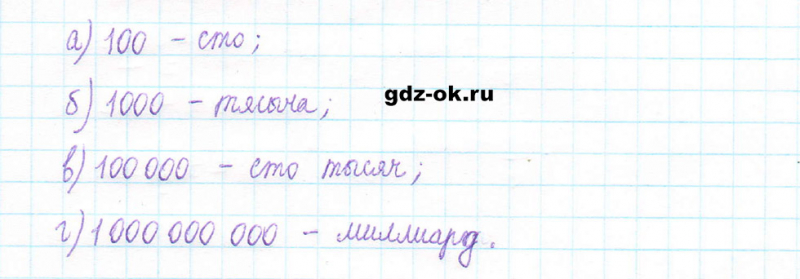 а) 100 – сто;
б) 1000 – тысяча;
gdz-ok.ru
в) 100 000 – сто тысяч;
г) 1 000 000 000 – миллиард.